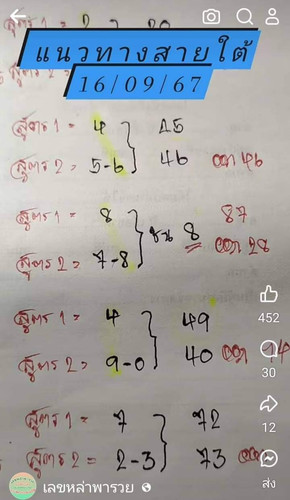 แนวทางสายใต้
16/09/67
สูตร 1 = 4 45
สูตร 2 = 5-6 46 ออก 46
สูตร 1 = 8 87
ชน 8
สูตร 2 = 7-8 ออก 28
สูตร 1 = 4 49
สูตร 2 = 9-0 40 ออก 94
สูตร 1 = 7 72
สูตร 2 = 2-3 73
452
30
12
ส่ง
เลขหล่าพารวย